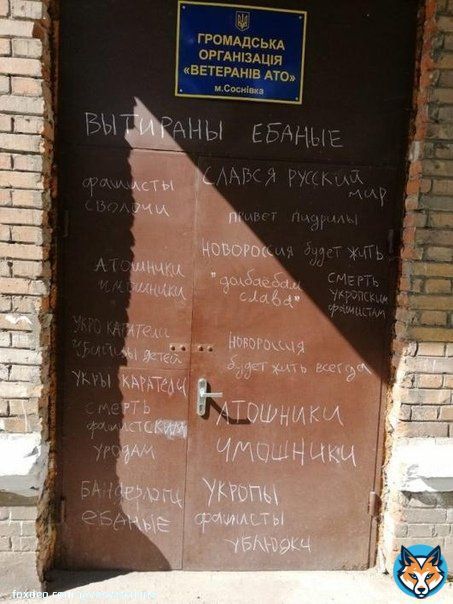 ГРОМАДСЬКА
ОРГАНІЗАЦІЯ
«ВЕТЕРАНІВ АТО»
м.Соснівка
ВЫТИРАНЫ ЕБАНЫЕ
фашисты
сволочи
СЛАВСЯ РУССКИЙ
МИР
ПРИВЕТ ПИДРИЛЫ
НОВОРОССИЯ будет жить
АТОШНИКИ
ЧМОШНИКИ
"долбаебам
слава"
СМЕРТЬ
УКРОПСКИМ
фашистам
УКРО КАРАТЕЛИ
УБИЙЦЫ детей
НОВОРОССИЯ
будет жить всегда
УКРЫ КАРАТЕЛИ
СМЕРТЬ
фашистским
УРОДАМ
АТОШНИКИ
ЧМОШНИКИ
БАНДЕРЛОГИ
ЕБАНЫЕ
УКРОПЫ
фашисты
УБЛЮДКИ